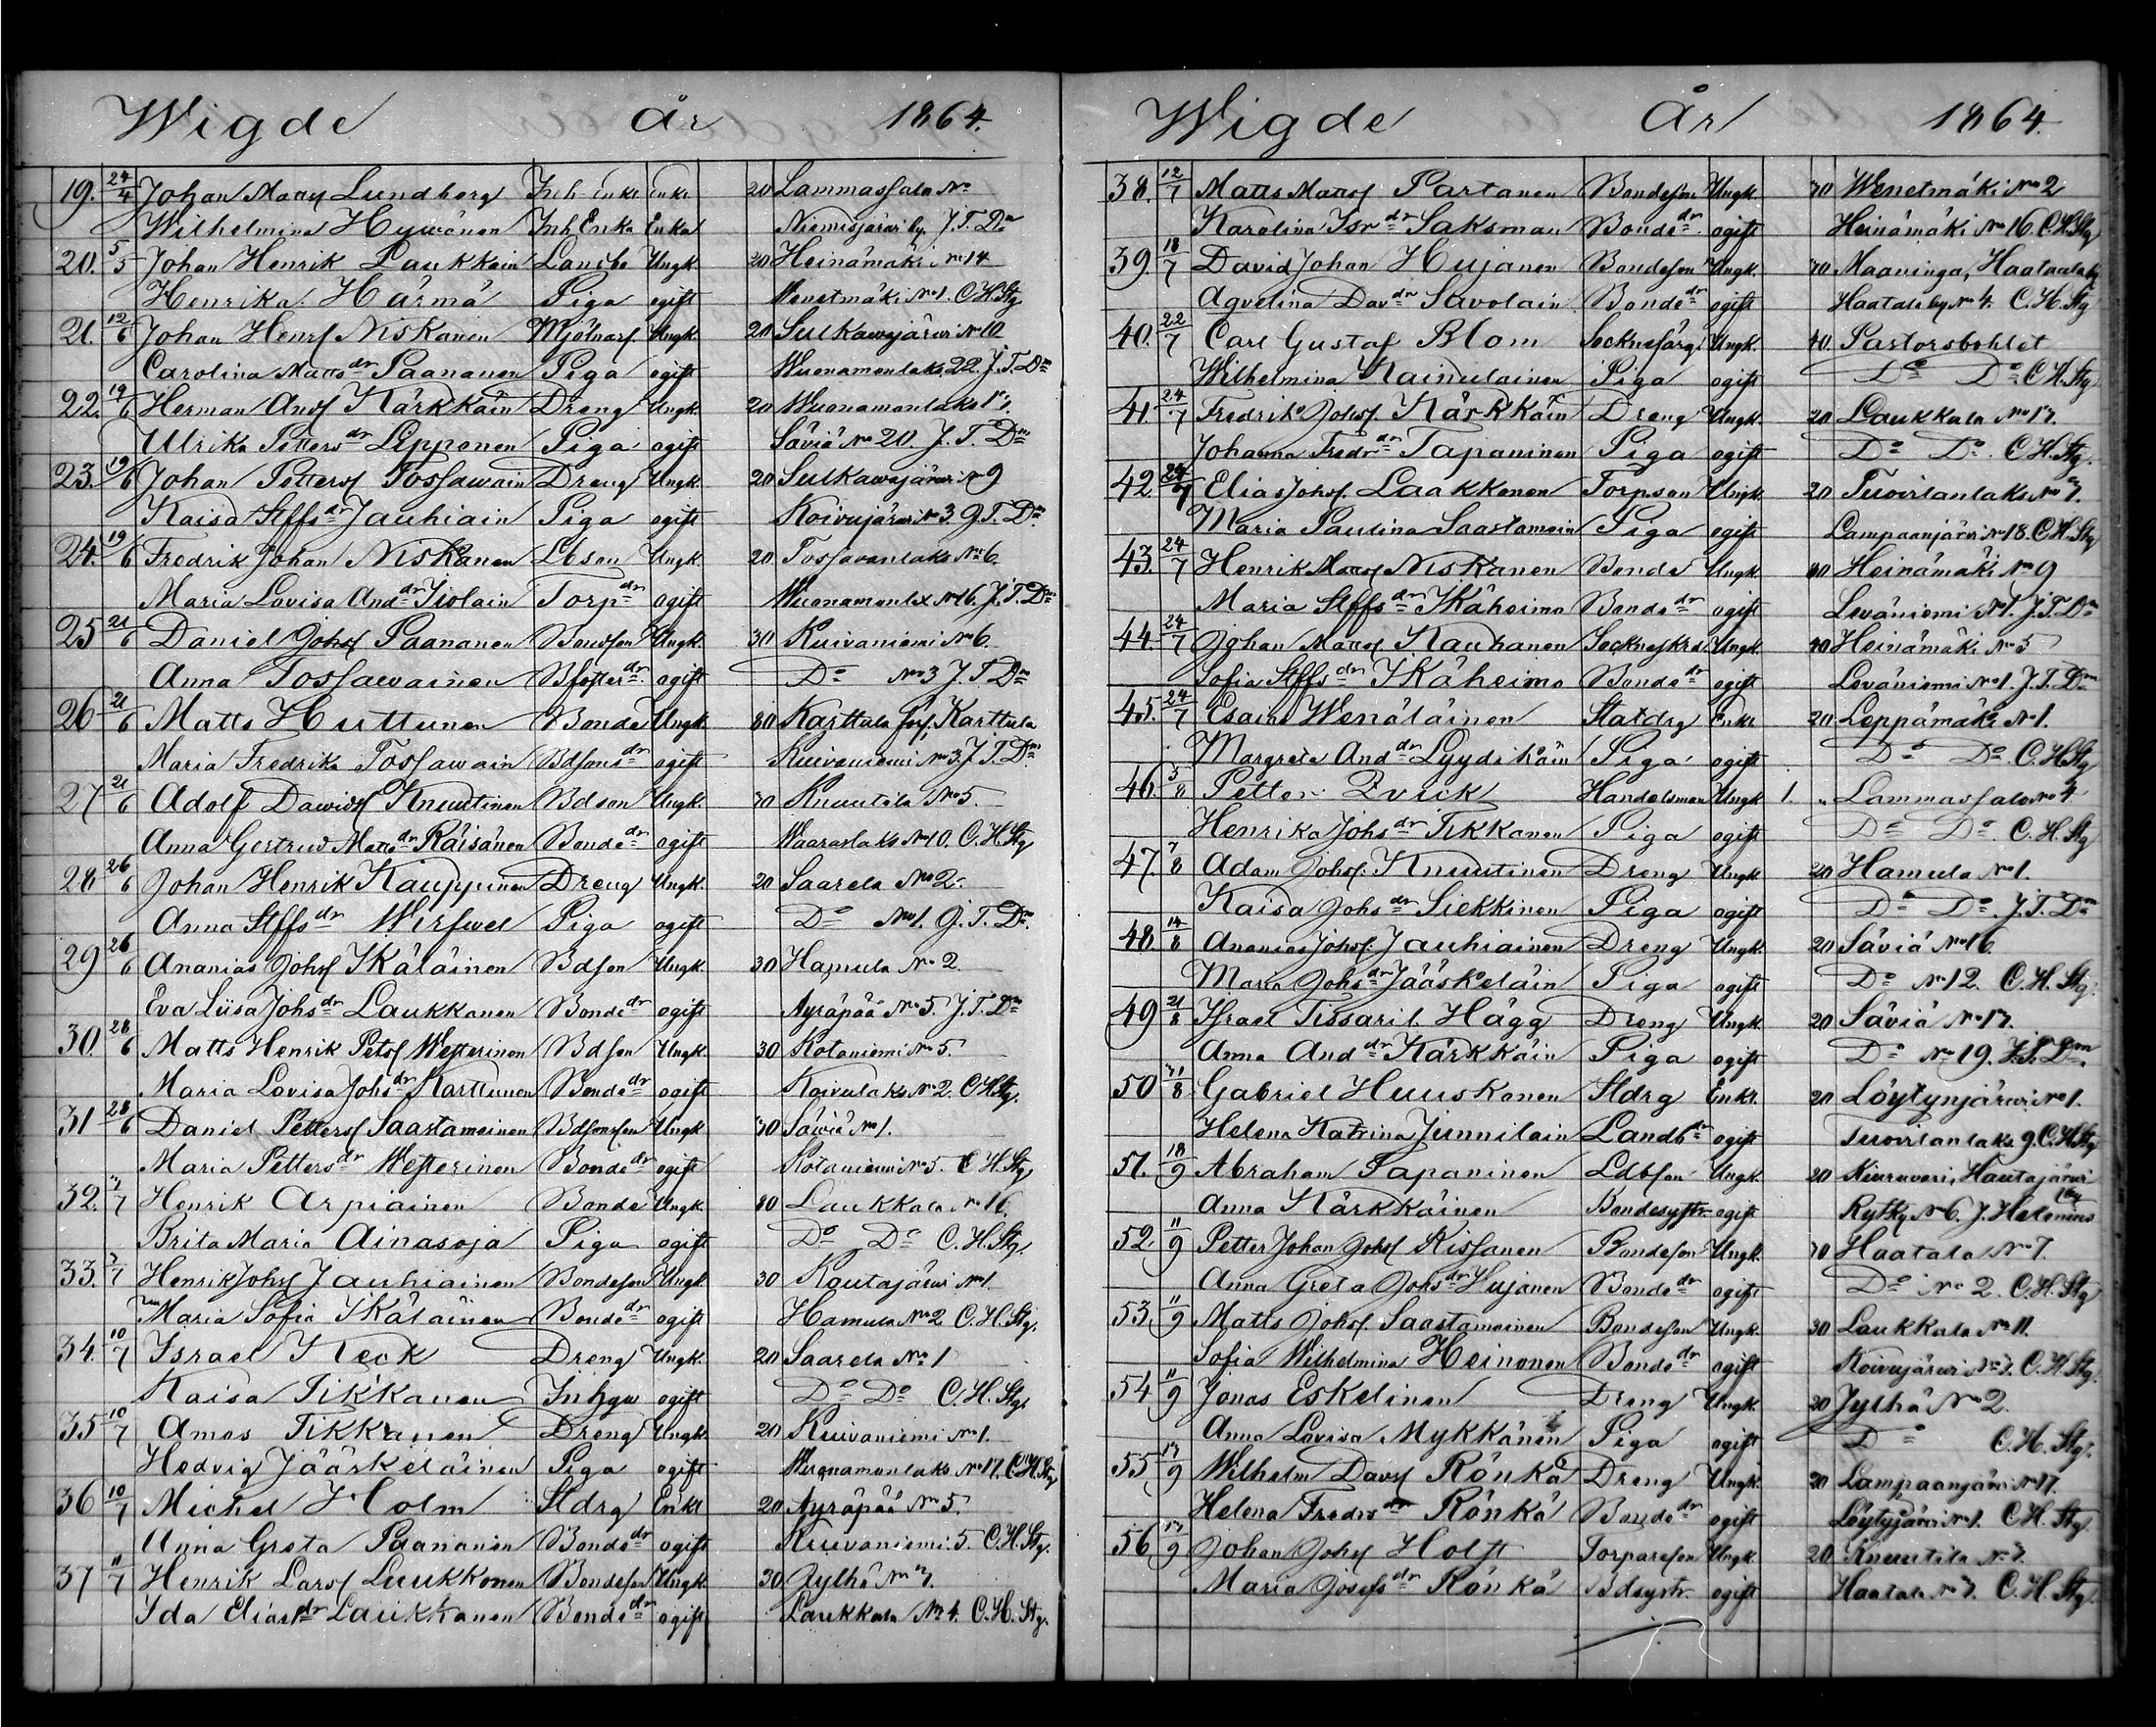 Wigde år 1864.
19. 24/4 Johan Maxs Lundberg Inh Enkl Enkl 20 Lammassalo No
Wilhelmina Hyvönen Inh Enka Enka Niemisjärvi by J. T. Dm
20. 5/5 Johan Henrik Laukkain Landbo Ungk. 20 Heinämäki No 14
Henrika Härmä Piga ogift Wenetmäki No 1. C. H. Stg
21. 12/6 Johan Henrs Niskanen Mjölnars. Ungk. 20 Sulkawajärwi No 10
Carolina Matts dr Paananen Piga ogift Wuonamonlaks. 22. J. T. Dm
22. 19/6 Herman Ands Kärkkäin Dreng Ungk. 20 Wuonamonlaks 17.
Ulrika Petters dr Lepponen Piga ogift Säviä No 20. J. T. Dm
23. 19/6 Johan Petters Tossawain Dreng Ungk. 20 Sulkawajärwi No 9
Kaisa Stffs dr Jauhiain Piga ogift Koivujärwi No 3. J. T. Dm
24. 19/6 Fredrik Johan Niskanen Lbson Ungk. 20 Tossavanlaks No 6.
Maria Lovisa And dr Iivolain Torp dr ogift Wuonamonlx No 16. J. T. Dm
25 21/6 Daniel Johs Paananen Bondson Ungk. 30 Kuivaniemi No 6.
Anna Tossawainen Bfoster dr ogift Do No 3 J. T. Dm
26 21/6 Matts Huttunen Bonde Ungk. 80 Karttula sn, Karttula
Maria Fredrika Tossawain Bdsons dr ogift Kuivaniemi No 3 J. T. Dm
27 21/6 Adolf Dawids Knuutinen Bdson Ungk. 30 Knuutila No 5.
Anna Gertrud Matts dr Räisänen Bonde dr ogift Waaraslaks No 10. C. H. Stg
28 26/6 Johan Henrik Kauppinen Dreng Ungk. 20 Saarela No 2.
Anna Stffs dr Wirswel Piga ogift Do No 1. J. T. Dm.
29 26/6 Ananias Johs Ikäläinen Bdson Ungk. 30 Hamula No 2.
Eva Liisa Johs dr Laukkanen Bonde dr ogift Äyräpää No 5. J. T. Dm
30. 28/6 Matts Henrik Pets Westerinen Bdson Ungk. 30 Kotaniemi No 5.
Maria Lovisa Johs dr Karttunen Bonde dr ogift Koivulaks No 2. C. H. Stg.
31 28/6 Daniel Petters Saastamoinen Bdsonson Ungk 30 Säviä No 1.
Maria Petters dr Westerinen Bonde dr ogift Kotaniemi No 5. C. H. Stg
32. 3/7 Henrik Arpiainen Bonde Ungk. 80 Laukkala No 16.
Brita Maria Ainasoja Piga ogift Do Do C. H. Stg.
33. 3/7 Henrik Johs Jauhiainen Bondeson Ungk. 30 Koutajärwi No 1.
Maria Sofia Ikäläinen Bonde dr ogift Hamula No 2 C. H. Stg.
34. 10/7 Israel Keck Dreng Ungk. 20 Saarela No 1
Kaisa Tikkanen Inhgw ogift Do Do C. H. Stg.
35 10/7 Amos Tikkanen Dreng Ungk. 20 Kuivaniemi No 1.
Hedvig Jääskeläinen Piga ogift Wuonamonlaks No 17. C. H. Stg
36 10/7 Michel Holm Stdrg Enkl 20 Äyräpää No 5.
Anna Greta Paananen Bonde dr ogift Kuivaniemi 5. C. H. Stg.
37 11/7 Henrik Lars Luukkonen Bondeson Ungk. 30 Jylhä No 7.
Ida Elias dr Laukkanen Bonde dr ogift Laukkala No 4. C. H. Stg.
Wigde År 1864.
38. 12/7 Matts Matts Partanen Bondeson Ungk. 30 Wenetmäki No 2
Karolina Isr dr Saksman Bonde dr ogift Heinämäki No 16. C. H. Stg
39. 18/7 David Johan Hujanen Bondeson Ungk. 30 Maaninga, Haatala by
Agvelina Dav dr Savolain Bonde dr ogift Haatala by No 4. C. H. Stg
40. 22/7 Carl Gustaf Blom Socknefärg. Ungk. 40. Pastorsbohlet
Wilhelmina Kainulainen Piga ogift Do Do C. H. Stg
41. 24/7 Fredrik Johs. Kärkkäin Dreng Ungk. 20 Laukkala No 17.
Johanna Fredr dr Tapaninen Piga ogift Do Do. C. H. Stg.
42 24/7 Elias Johs. Laakkonen Torpson Ungk. 20 Tuovilanlaks No 7.
Maria Paulina Saastamoin Piga ogift Lampaanjärvi No 18. C. H. Stg
43. 24/7 Henrik Matts Niskanen Bonde Ungk. 80 Heinämäki No 9
Maria Stffs dr Ikäheimo Bonde dr ogift Leväniemi No 1. J. T. Dm
44. 24/7 Johan Matts Kauhanen Sockneskrd. Ungk. 40 Heinämäki No 5
Sofia Stffs dr Ikäheimo Bonde dr ogift Leväniemi No 1. J. T. Dm
45. 24/7 Esaias Wenäläinen Statdrg Enkl. 20 Leppämäki No 1.
Margreta And dr Lyydikäin Piga ogift Do Do. C. H. Stg
46. 3/8 Petter Zvick Handelsman Ungk 1. " Lammassalo No 4
Henrika Johs dr Tikkanen Piga ogift Do Do C. H. Stg
47. 7/8 Adam Johs. Knuutinen Dreng Ungk. 20 Hamula No 1.
Kaisa Johs dr Siekkinen Piga ogift Do Do. J. T. Dm
48 14/8 Ananias Johs. Jauhiainen Dreng Ungk. 20 Säviä No 16.
Maria Johs dr Jääskeläin Piga ogift Do No 12. C. H. Stg.
49 21/8 Israel Tissaril. Hägg Dreng Ungk. 20 Säviä No 17.
Anna And dr Kärkkäin Piga ogift Do No 19. J. T. Dm.
50 31/8 Gabriel Huuskonen Stdrg Enkl. 20 Löytynjärwi No 1.
Helena Katrina Junnilain Landb dr ogift Tuovilanlaks 9. C. H. Stg
51. 18/9 Abraham Tapaninen Ldbson Ungk. 20 Kiuruvesi, Hautajärwi by
Anna Kärkkäinen Bondesystr. ogift Rytky No 6. J. Helenius
52. 11/9 Petter Johan Johs Kissanen Bondeson Ungk. 30 Haatala No 7.
Anna Greta Johs dr Hujanen Bonde dr ogift Do No 2. C. H. Stg
53. 11/9 Matts Johs. Saastamoinen Bondeson Ungk. 30 Laukkala No 11.
Sofia Wilhelmina Heinonen Bonde dr ogift Koivujärwi No 3. C. H. Stg.
54 11/9 Jonas Eskelinen Dreng Ungk. 20 Jylhä No 2.
Anna Lovisa Mykkänen Piga ogift Do C. H. Stg.
55 17/9 Wilhelm Davs Rönkä Dreng Ungk. 20 Lampaanjärvi No 17.
Helena Fredrs dr Rönkä Bonde dr ogift Löytyjärvi No 1. C. H. Stg.
56 17/9 Johan Johs Holst Torpareson Ungk. 20. Knuutila No 3.
Maria Josefs dr Rönkä Bdsystr. ogift Haatala No 3. C. H. Stg.